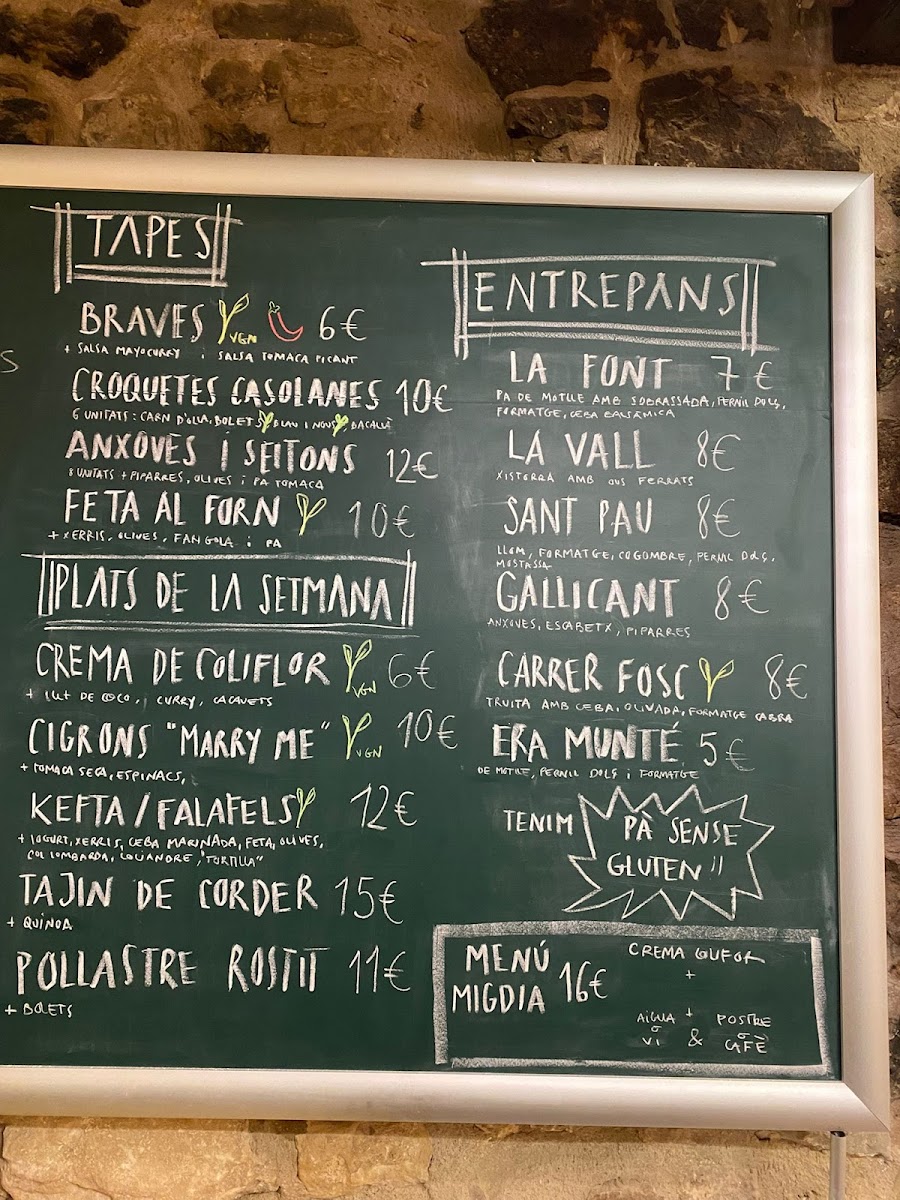 TAPES
BRAVES VGN 6€
+ SALSA MAYOCURRY i SALSA TOMACA PICANT
CROQUETES CASOLANES 10€
6 UNITATS: CARN D'OLLA, BOLETS BLAU I NOUS BACALLÀ
ANXOVES i SEITONS 12€
8 UNITATS + PIPARRES, OLIVES i PA TOMACA
FETA AL FORN 10€
+ XERRIS, OLIVES, FARIGOLA i PA
PLATS DE LA SETMANA
CREMA DE COLIFLOR VGN 6€
+ LLET DE COCO, CURRY, CACAUETS
CIGRONS "MARRY ME" VGN 10€
+ TOMACA SECA, ESPINACS,
KEFTA / FALAFELS 12€
+ IOGURT, XERRIS, CEBA MARINADA, FETA, OLIVES,
COL LOMBARDA, COLIANDRE, "TORTILLA"
TAJIN DE CORDER 15€
+ QUINOA
POLLASTRE ROSTIT 11€
+ BOLETS
ENTREPANS
LA FONT 7€
PA DE MOTLLE AMB SOBRASSADA, PERNIL DOLÇ,
FORMATGE, CEBA BALSÀMICA
LA VALL 8€
XISTORRA AMB OUS FERRATS
SANT PAU 8€
LLOM, FORMATGE, COGOMBRE, PERNIL DOLÇ,
MOSTASSA
GALLICANT 8€
ANXOVES, ESCABETX, PIPARRES
CARRER FOSC 8€
TRUITA AMB CEBA, OLIVADA, FORMATGE CABRA
ERA MUNTÉ 5€
DE MOTLLE, PERNIL DOLÇ i FORMATGE
TENIM PÀ SENSE
GLUTEN!!
MENÚ
MIGDIA 16€
CREMA
+
AIGUA + POSTRE
O O
VI & CAFÈ